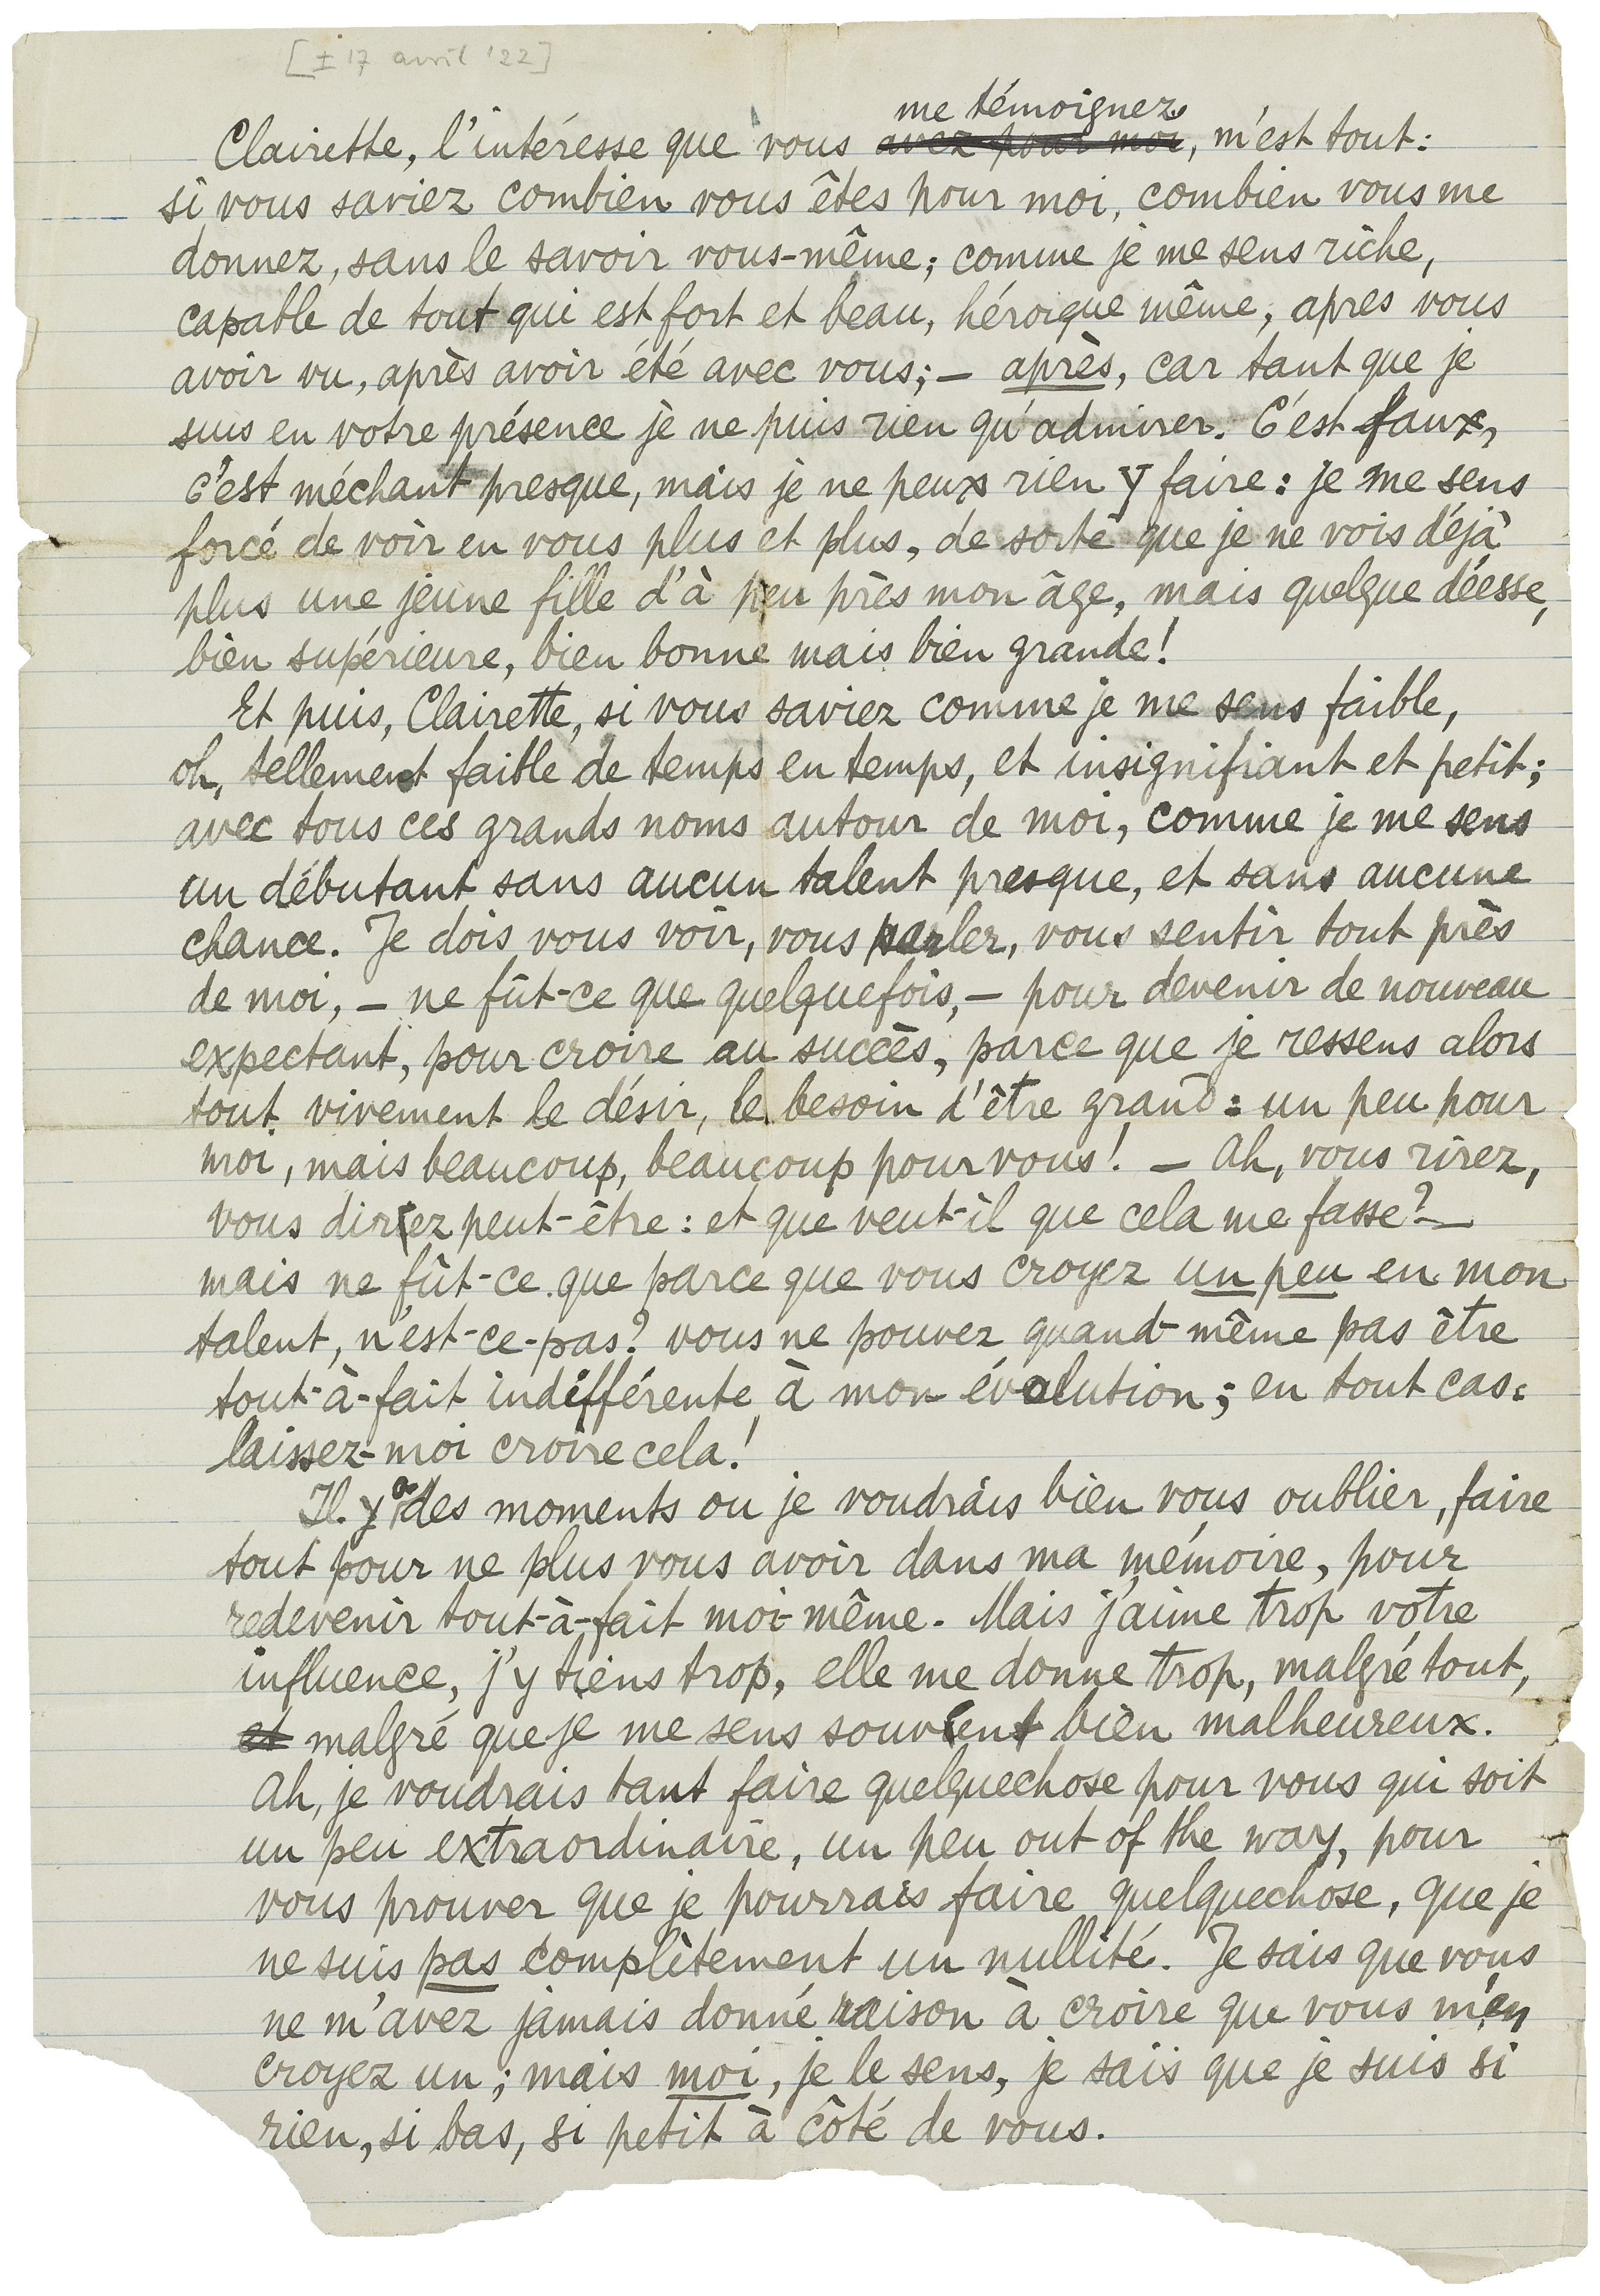 [± 17 avril '22]
me témoignez
Clairette, l'intéresse que vous avez pour moi, m'est tout:
si vous saviez combien vous êtes pour moi, combien vous me
donnez, sans le savoir vous-même; comme je me sens riche,
capable de tout qui est fort et beau, héroïque même, apres vous
avoir vu, après avoir été avec vous; — après, car tant que je
suis en votre présence je ne puis rien qu'admirer. C'est faux,
c'est méchant presque, mais je ne peux rien y faire: je me sens
forcé de voir en vous plus et plus, de sorte que je ne vois déjà
plus une jeune fille d'à peu près mon âge, mais quelque déesse,
bien supérieure, bien bonne mais bien grande!
Et puis, Clairette, si vous saviez comme je me sens faible,
oh, tellement faible de temps en temps, et insignifiant et petit;
avec tous ces grands noms autour de moi, comme je me sens
un débutant sans aucun talent presque, et sans aucune
chance. Je dois vous voir, vous parler, vous sentir tout près
de moi, — ne fût-ce que quelquefois, — pour devenir de nouveau
expectant, pour croire au succès, parce que je ressens alors
tout vivement le désir, le besoin d'être grand: un peu pour
moi, mais beaucoup, beaucoup pour vous! — Ah, vous rirez,
vous direz peut-être: et que veut-il que cela me fasse? —
mais ne fût-ce que parce que vous croyez un peu en mon
talent, n'est-ce-pas? vous ne pouvez quand-même pas être
tout-à-fait indifférente à mon évolution; en tout cas:
laissez-moi croire cela!
Il y a des moments ou je voudrais bien vous oublier, faire
tout pour ne plus vous avoir dans ma mémoire, pour
redevenir tout-à-fait moi-même. Mais j'aime trop votre
influence, j'y tiens trop, elle me donne trop, malgré tout,
et malgré que je me sens souvent bien malheureux.
Ah, je voudrais tant faire quelquechose pour vous qui soit
un peu extraordinaire, un peu out of the way, pour
vous prouver que je pourrais faire quelquechose, que je
ne suis pas complètement un nullité. Je sais que vous
ne m'avez jamais donné raison à croire que vous m'en
croyez un; mais moi, je le sens, je sais que je suis si
rien, si bas, si petit à côté de vous.